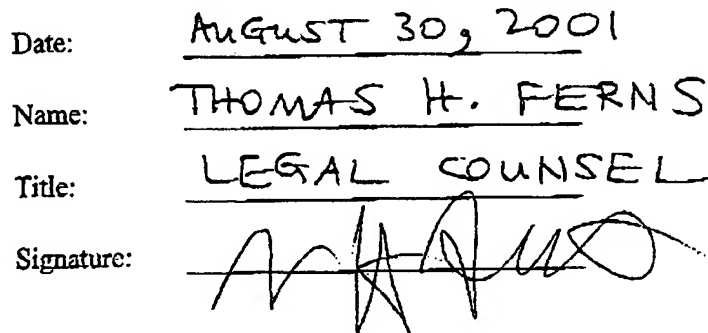 Date: AUGUST 30, 2001
Name: THOMAS H. FERNS
Title: LEGAL COUNSEL
Signature: